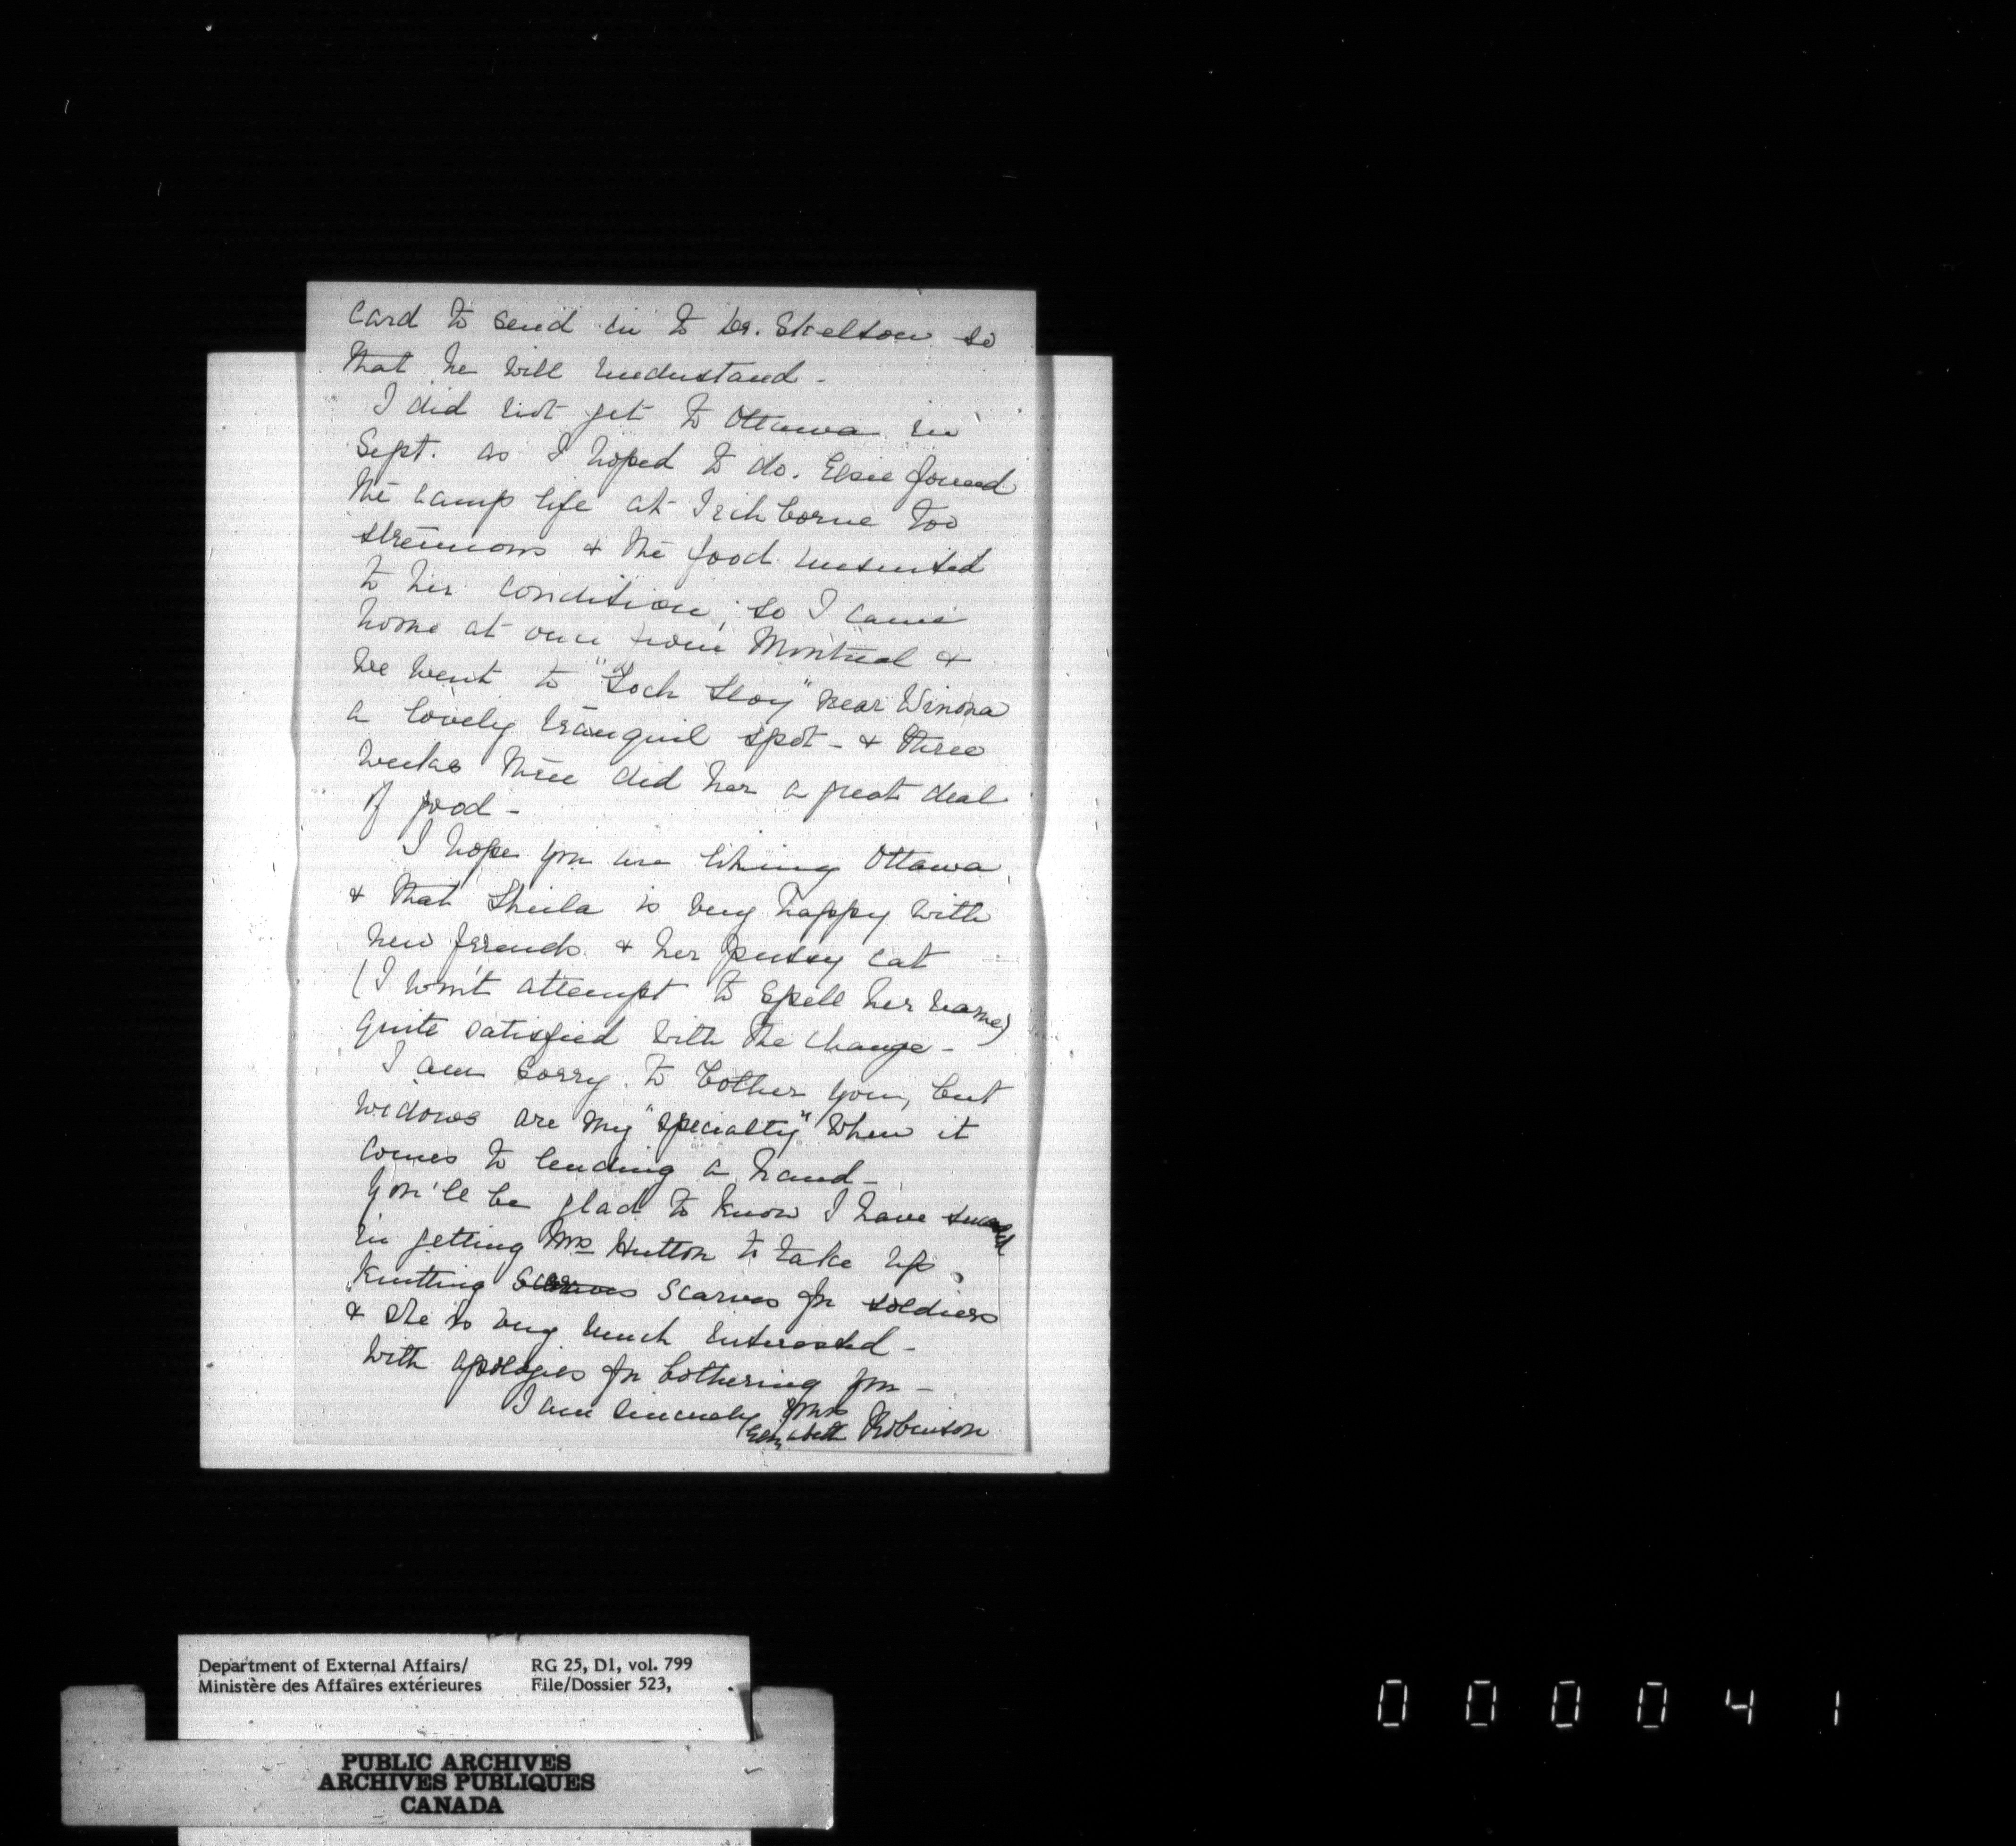 card to send in to Dr. Skelton so
that he will understand -
I did not get to Ottawa in
Sept. as I hoped to do. Elsie found
the camp life at too
strenuous & the food unsuited
to her condition, so I came
home at once from Montreal &
we went to "Loch Sloy" near Winona
a lovely tranquil spot - & three
weeks there did her a great deal
of good -
I hope you are liking Ottawa
& that Sheila is very happy with
new friends & her pussy cat
(I won't attempt to spell her name)
quite satisfied with the change -
I am sorry to bother you, but
widows are my "specialty" when it
comes to lending a hand -
You'll be glad to know I have
in getting Mrs Hutton to take up
knitting scarves for soldiers
& she is very much interested -
with apologies for bothering you -
I am sincerely yours
Elizabeth Robinson
Department of External Affairs/ RG 25, D1, vol. 799
Ministère des Affaires extérieures File/Dossier 523,
PUBLIC ARCHIVES
ARCHIVES PUBLIQUES
CANADA
000041